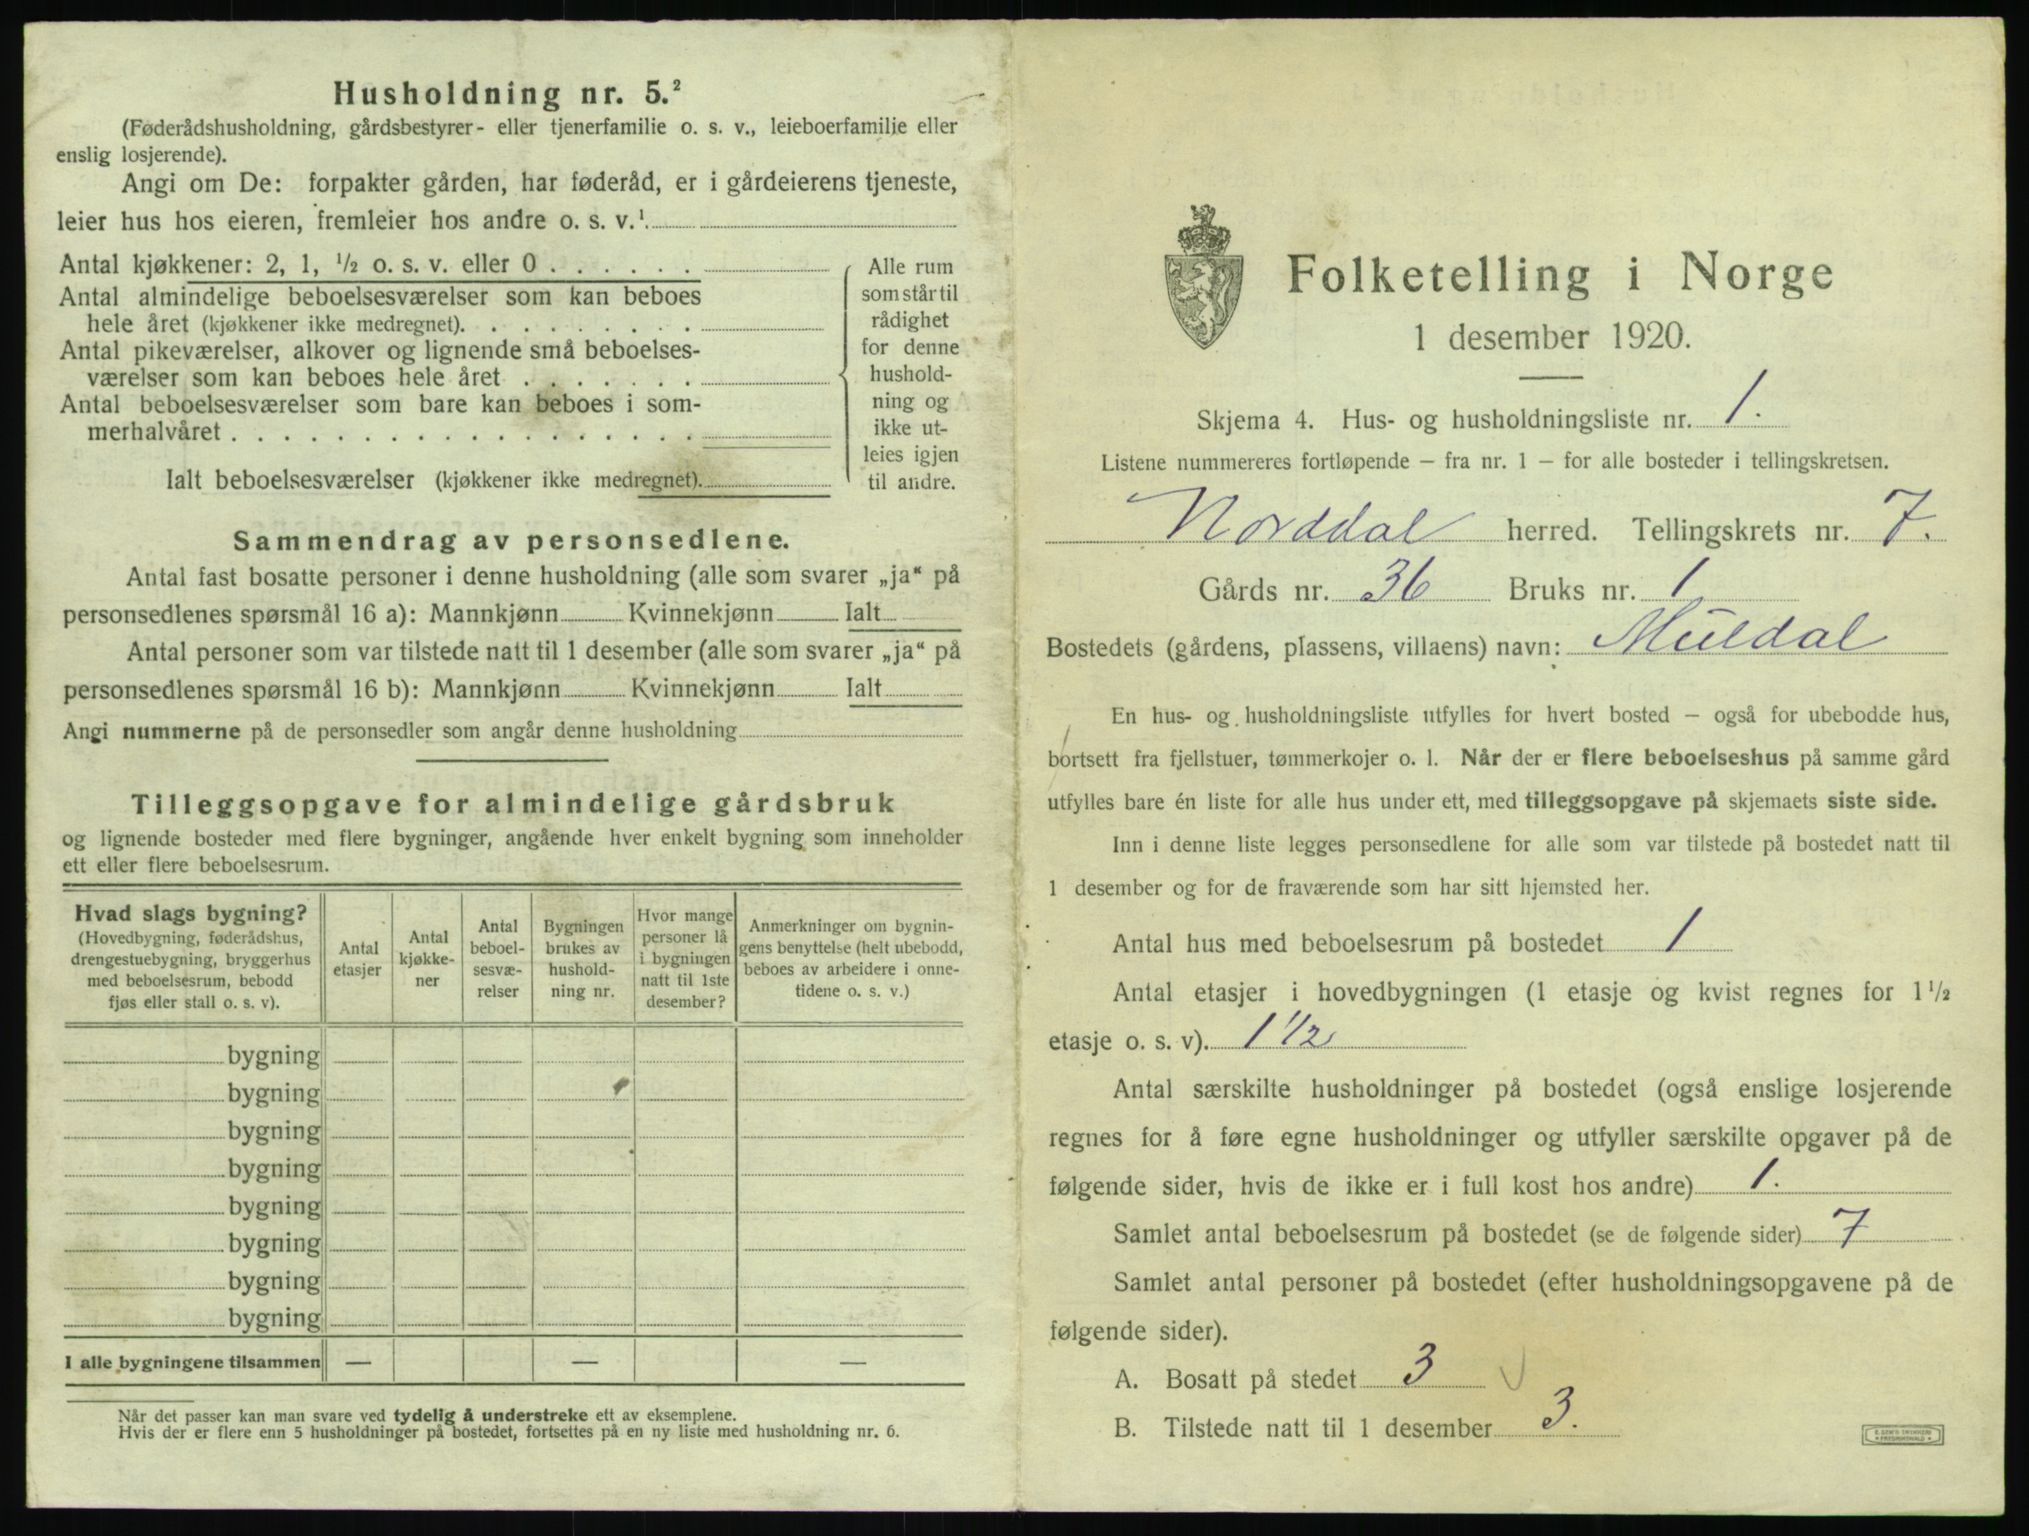 Husholdning nr. 5.²
(Føderådshusholdning, gårdsbestyrer- eller tjenerfamilie o. s. v., leieboerfamilie eller
enslig losjerende).
Angi om De: forpakter gården, har føderåd, er i gårdeierens tjeneste,
leier hus hos eieren, fremleier hos andre o. s. v.¹
Antal kjøkkener: 2, 1, ½ o. s. v. eller 0 . . . . . .
Antal almindelige beboelsesværelser som kan beboes
hele året (kjøkkener ikke medregnet). . . . . . . . .
Antal pikeværelser, alkover og lignende små beboelses-
værelser som kan beboes hele året . . . . . . .
Antal beboelsesværelser som bare kan beboes i som-
merhalvåret . . . . . . . . . . . . . . . . . .
Ialt beboelsesværelser (kjøkkener ikke medregnet).
Alle rum
som står til
rådighet
for denne
hushold-
ning og
ikke ut-
leies igjen
til andre.
Sammendrag av personsedlene.
Antal fast bosatte personer i denne husholdning (alle som svarer „ja“ på
personsedlenes spørsmål 16 a): Mannkjønn Kvinnekjønn Ialt
Antal personer som var tilstede natt til 1 desember (alle som svarer „ja“ på
personsedlenes spørsmål 16 b): Mannkjønn Kvinnekjønn Ialt
Angi nummerne på de personsedler som angår denne husholdning
Tilleggsopgave for almindelige gårdsbruk
og lignende bosteder med flere bygninger, angående hver enkelt bygning som inneholder
ett eller flere beboelsesrum.
Hvad slags bygning?
(Hovedbygning, føderådshus,
drengestuebygning, bryggerhus
med beboelsesrum, bebodd
fjøs eller stall o. s. v).
Antal
etasjer
Antal
kjøkke-
ner
Antal
beboel-
sesvæ-
relser
Bygningen
brukes av
hushold-
ning nr.
Hvor mange
personer lå
i bygningen
natt til 1ste
desember?
Anmerkninger om bygnin-
gens benyttelse (helt ubebodd,
beboes av arbeidere i onne-
tidene o. s. v.)
bygning
bygning
bygning
bygning
bygning
bygning
bygning
bygning
I alle bygningene tilsammen — — —
Når det passer kan man svare ved tydelig å understreke ett av eksemplene.
Hvis der er flere enn 5 husholdninger på bostedet, fortsettes på en ny liste med husholdning nr. 6.
Folketelling i Norge
1 desember 1920.
Skjema 4. Hus- og husholdningsliste nr. 1.
Listene nummereres fortløpende – fra nr. 1 – for alle bosteder i tellingskretsen.
Norddal herred. Tellingskrets nr. 7.
Gårds nr. 36 Bruks nr. 1
Bostedets (gårdens, plassens, villaens) navn: Muldal
En hus- og husholdningsliste utfylles for hvert bosted – også for ubebodde hus,
bortsett fra fjellstuer, tømmerkojer o. l. Når der er flere beboelseshus på samme gård
utfylles bare én liste for alle hus under ett, med tilleggsopgave på skjemaets siste side.
Inn i denne liste legges personsedlene for alle som var tilstede på bostedet natt til
1 desember og for de fraværende som har sitt hjemsted her.
Antal hus med beboelsesrum på bostedet 1
Antal etasjer i hovedbygningen (1 etasje og kvist regnes for 1 ½
etasje o. s. v). 1 1/2
Antal særskilte husholdninger på bostedet (også enslige losjerende
regnes for å føre egne husholdninger og utfyller særskilte opgaver på de
følgende sider, hvis de ikke er i full kost hos andre) 1.
Samlet antal beboelsesrum på bostedet (se de følgende sider) 7
Samlet antal personer på bostedet (efter husholdningsopgavene på de
følgende sider).
A. Bosatt på stedet 3
B. Tilstede natt til 1 desember 3.